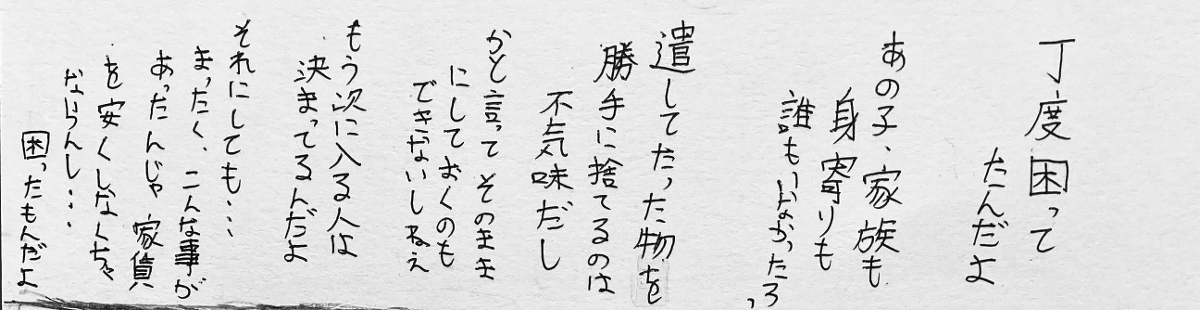 丁度困って
たんだよ
あの子、家族も
身寄りも
誰もいなかったろ
遺してたった物を
勝手に捨てるのは
不気味だし
かと言ってそのまま
にしておくのも
できないしねえ
もう次に入る人は
決まってるんだよ
それにしても...
まったく、こんな事が
あったんじゃ家賃
を安くしなくちゃ
ならんし...
困ったもんだよ